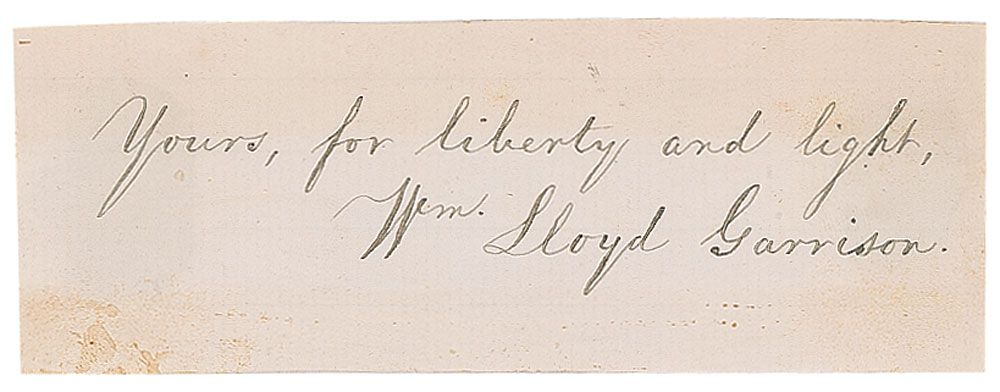 Yours, for liberty and light,
Wm. Lloyd Garrison.